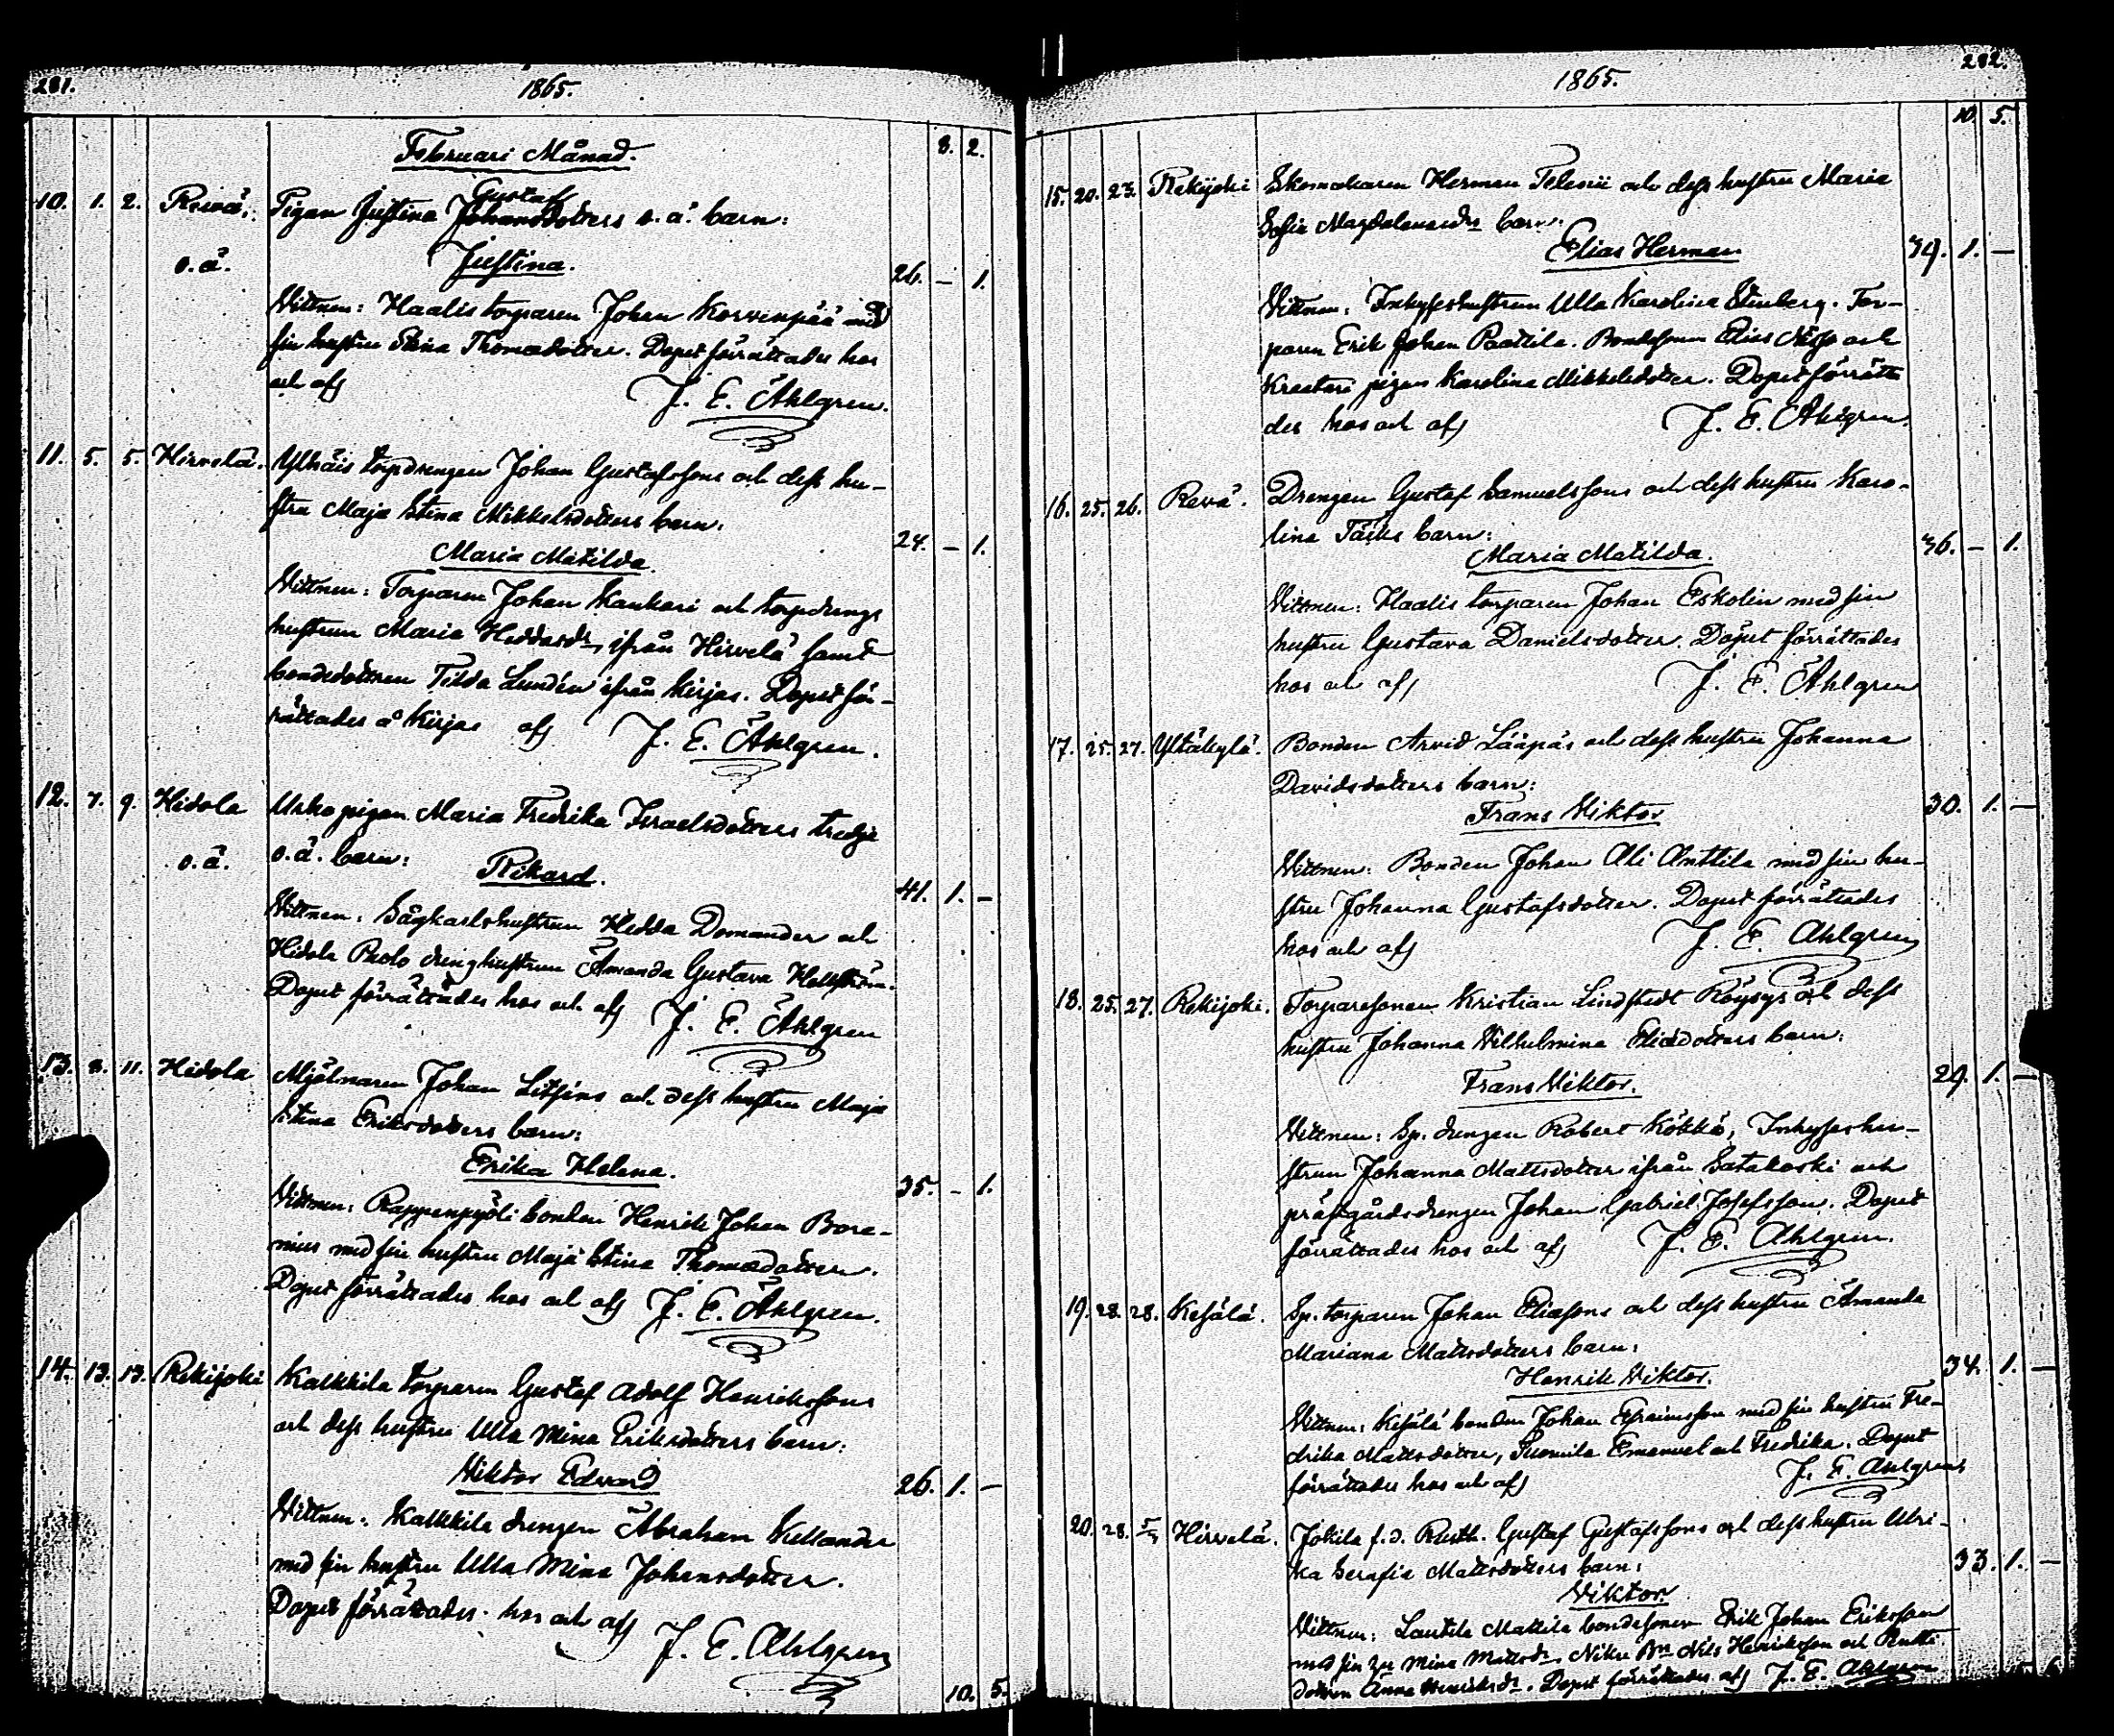 281. 1865.
8. 2.
Februari Månad.
10. 1. 2. Rewä. Pigan Justina Johansdotters o. ä. barn:
Gustaf
o. ä. Justina. 26. — 1.
Vittnen: Haalis torparen Johan Korvenpää med
sin hustru Stina Thomasdotter. Dopet förrättades hos
och af J. E. Åhlgren.
11. 5. 5. Hirvelä. torpdrengen Johan Gustafssons och dess hu-
stru Maja Stina Mikkelsdotters barn.
Maria Matilda. 24. — 1.
Vittnen: Torparen Johan Kankari och torpdrengs
hustrun Maria ifrån Hirvelä samt
bondedottren Tilda Lundén ifrån Kirjas. Dopet för-
rättades å Kirjas af J. E. Åhlgren.
12. 7. 9. Hidola Urho pigan Maria Fredrika Israelsdotters tredje
o. ä. o. ä. barn: Rikard. 41. 1. —
Vittnen: Sågkarlshustrun Hedda Domander och
Hidola drenghustrun Amanda Gustava Hellström.
Dopet förrättades hos och af J. E. Åhlgren
13. 8. 11. Hidola Mjölnaren Johan och dess hustru Maja
Stina Eriksdotters barn:
Erika Helena. 35. — 1.
Vittnen: bonden Henrik Johan Bore-
nius med sin hustru Maja Stina Thomasdotter.
Dopet förrättades hos och af J. E. Åhlgren.
14. 13. 13. Rekijoki Kalkkila torparen Gustaf Adolf Henrikssons
och dess hustru Ulla Mina Eriksdotters barn:
Viktor Edvard 26. 1. —
Vittnen: Kalkkila drengen Abraham Kellander
med sin hustru Ulla Mina Johansdotter.
Dopet förrättades hos och af J. E. Åhlgren
10. 5.
1865. 282.
10. 5.
15. 20. 23. Rekijoki Skomakaren Herman Telenii och dess hustru Maria
Sofia Magdalenasdr barn:
Elias Herman 39. 1. —
Vittnen: Inhyseshustrun Ulla Karolina Stenberg. Tor-
paren Erik Johan Paattila. Bondesonen Elias och
pigan Karolina Mikkelsdotter. Dopet förrätta
des hos och af J. E. Åhlgren.
16. 25. 26. Rewä. Drengen Gustaf Samuelssons och dess hustru Karo-
lina Täcks barn:
Maria Matilda. 36. — 1.
Vittnen: Haalis torparen Johan Eskolin med sin
hustru Gustava Danielsdotter. Dopet förrättades
hos och af J. E. Åhlgren
17. 25. 27. Yltäkylä. Bonden Arvid Lääpäs och dess hustru Johanna
Davidsdotters barn:
Frans Viktor 30. 1. —
Vittnen: Bonden Johan Ali Anttila med sin hu-
stru Johanna Gustafsdotter. Dopet förrättades
hos och af J. E. Åhlgren
18. 25. 27. Rekijoki. Torparesonen Kristian Lindstedt och dess
hustru Johanna Vilhelmina Eliædotters barn:
Frans Viktor. 29. 1. —
Vittnen: Sp. drengen Robert Kökkä, Inhyseshu-
strun Johanna Mattsdotter ifrån Satakoski och
prästgårdsdrengen Johan Gabriel Josefsson. Dopet
förrättades hos och af J. E. Åhlgren.
19. 28. 28. Kesälä. Sp. torparen Johan Eliæsons och dess hustru Amanda
Mariana Mattsdotters barn:
Henrik Viktor. 34. 1. —
Vittnen: Kesälä bonden Johan Efraimsson med sin hustru Fre-
drika Mattsdotter, Emanuel och Fredrika. Dopet
förrättades hos och af J. E. Åhlgren
20. 28. Hirvelä. Jokila f. d. Rusth. Gustaf Gustafssons och dess hustru Ulri-
ka Serafia Mattsdotters barn:
Viktor. 33. 1. —
Vittnen: Mattila bondesonen Erik Johan Eriksson
med sin Mina Nils Henriksson och
dottren Anna. Dopet förrättades af J. E. Åhlgren